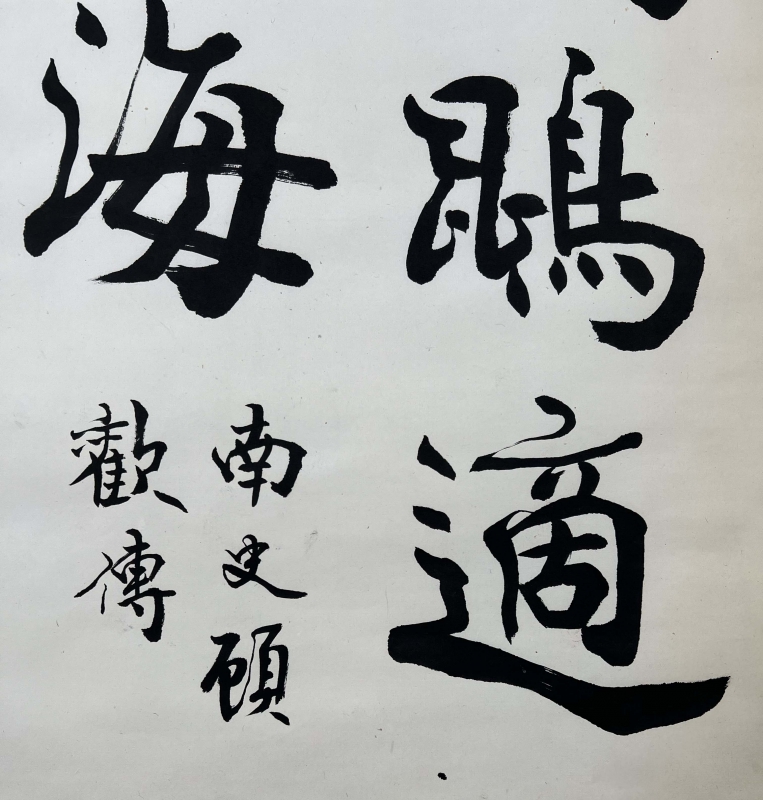 鵾適
海
南史顧
歡傳